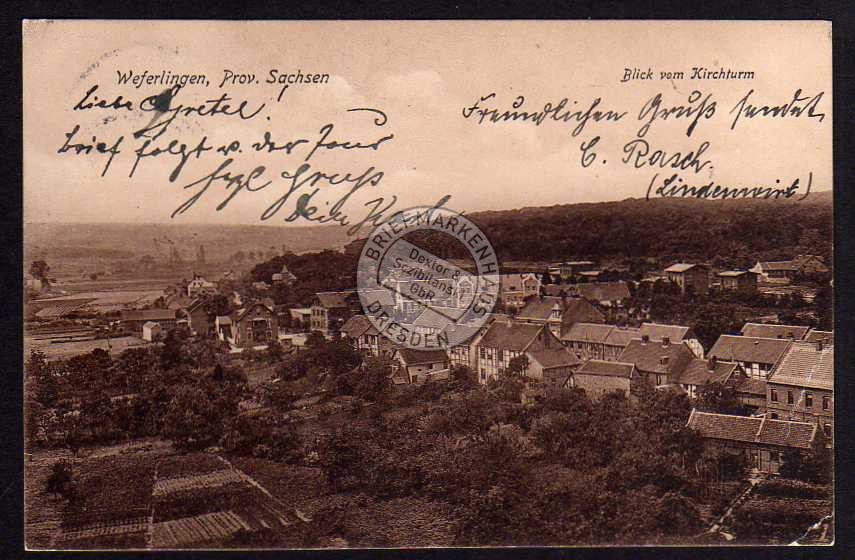 Weferlingen, Prov. Sachsen
Blick vom Kirchturm
Liebe Gretel!
Brief folgt v. der Tour
Hzl Gruss
Dein
Freundlichen Gruß sendet
C. Rasch.
(Lindenwirt)
BRIEFMARKENHAUS
Dextor &
Sczibilanski
GbR
DRESDEN